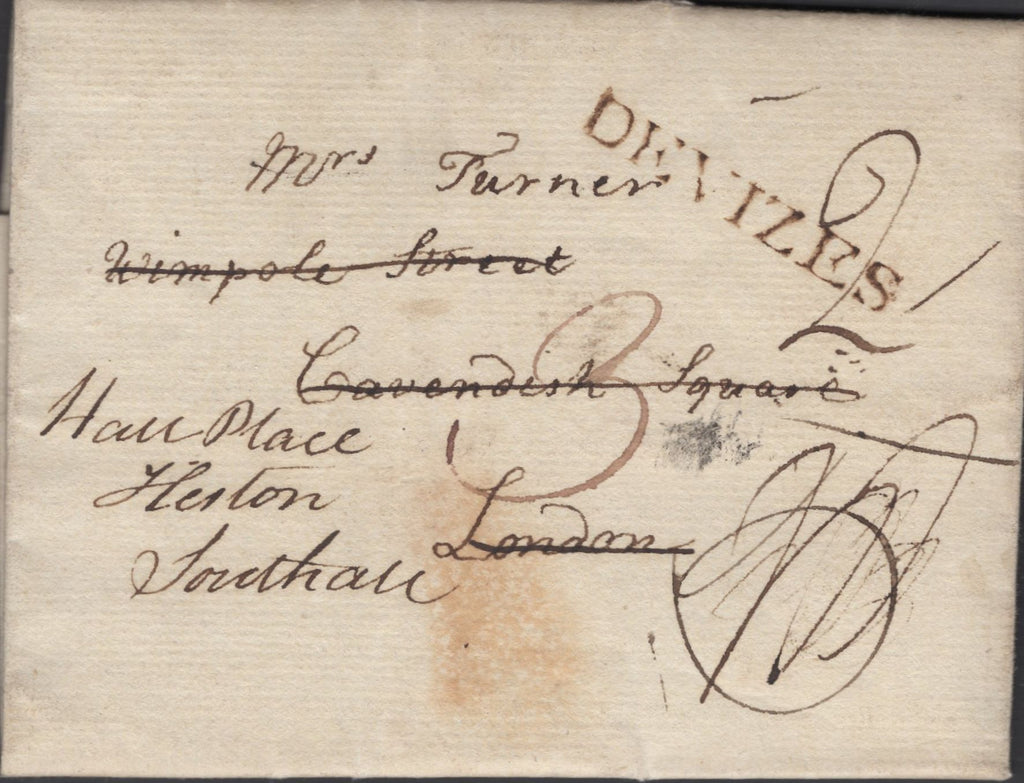 DEVIZES
Mrs Turner
Wimpole Street
Cavendish Square
London
3
Hall Place
Heston
Southall